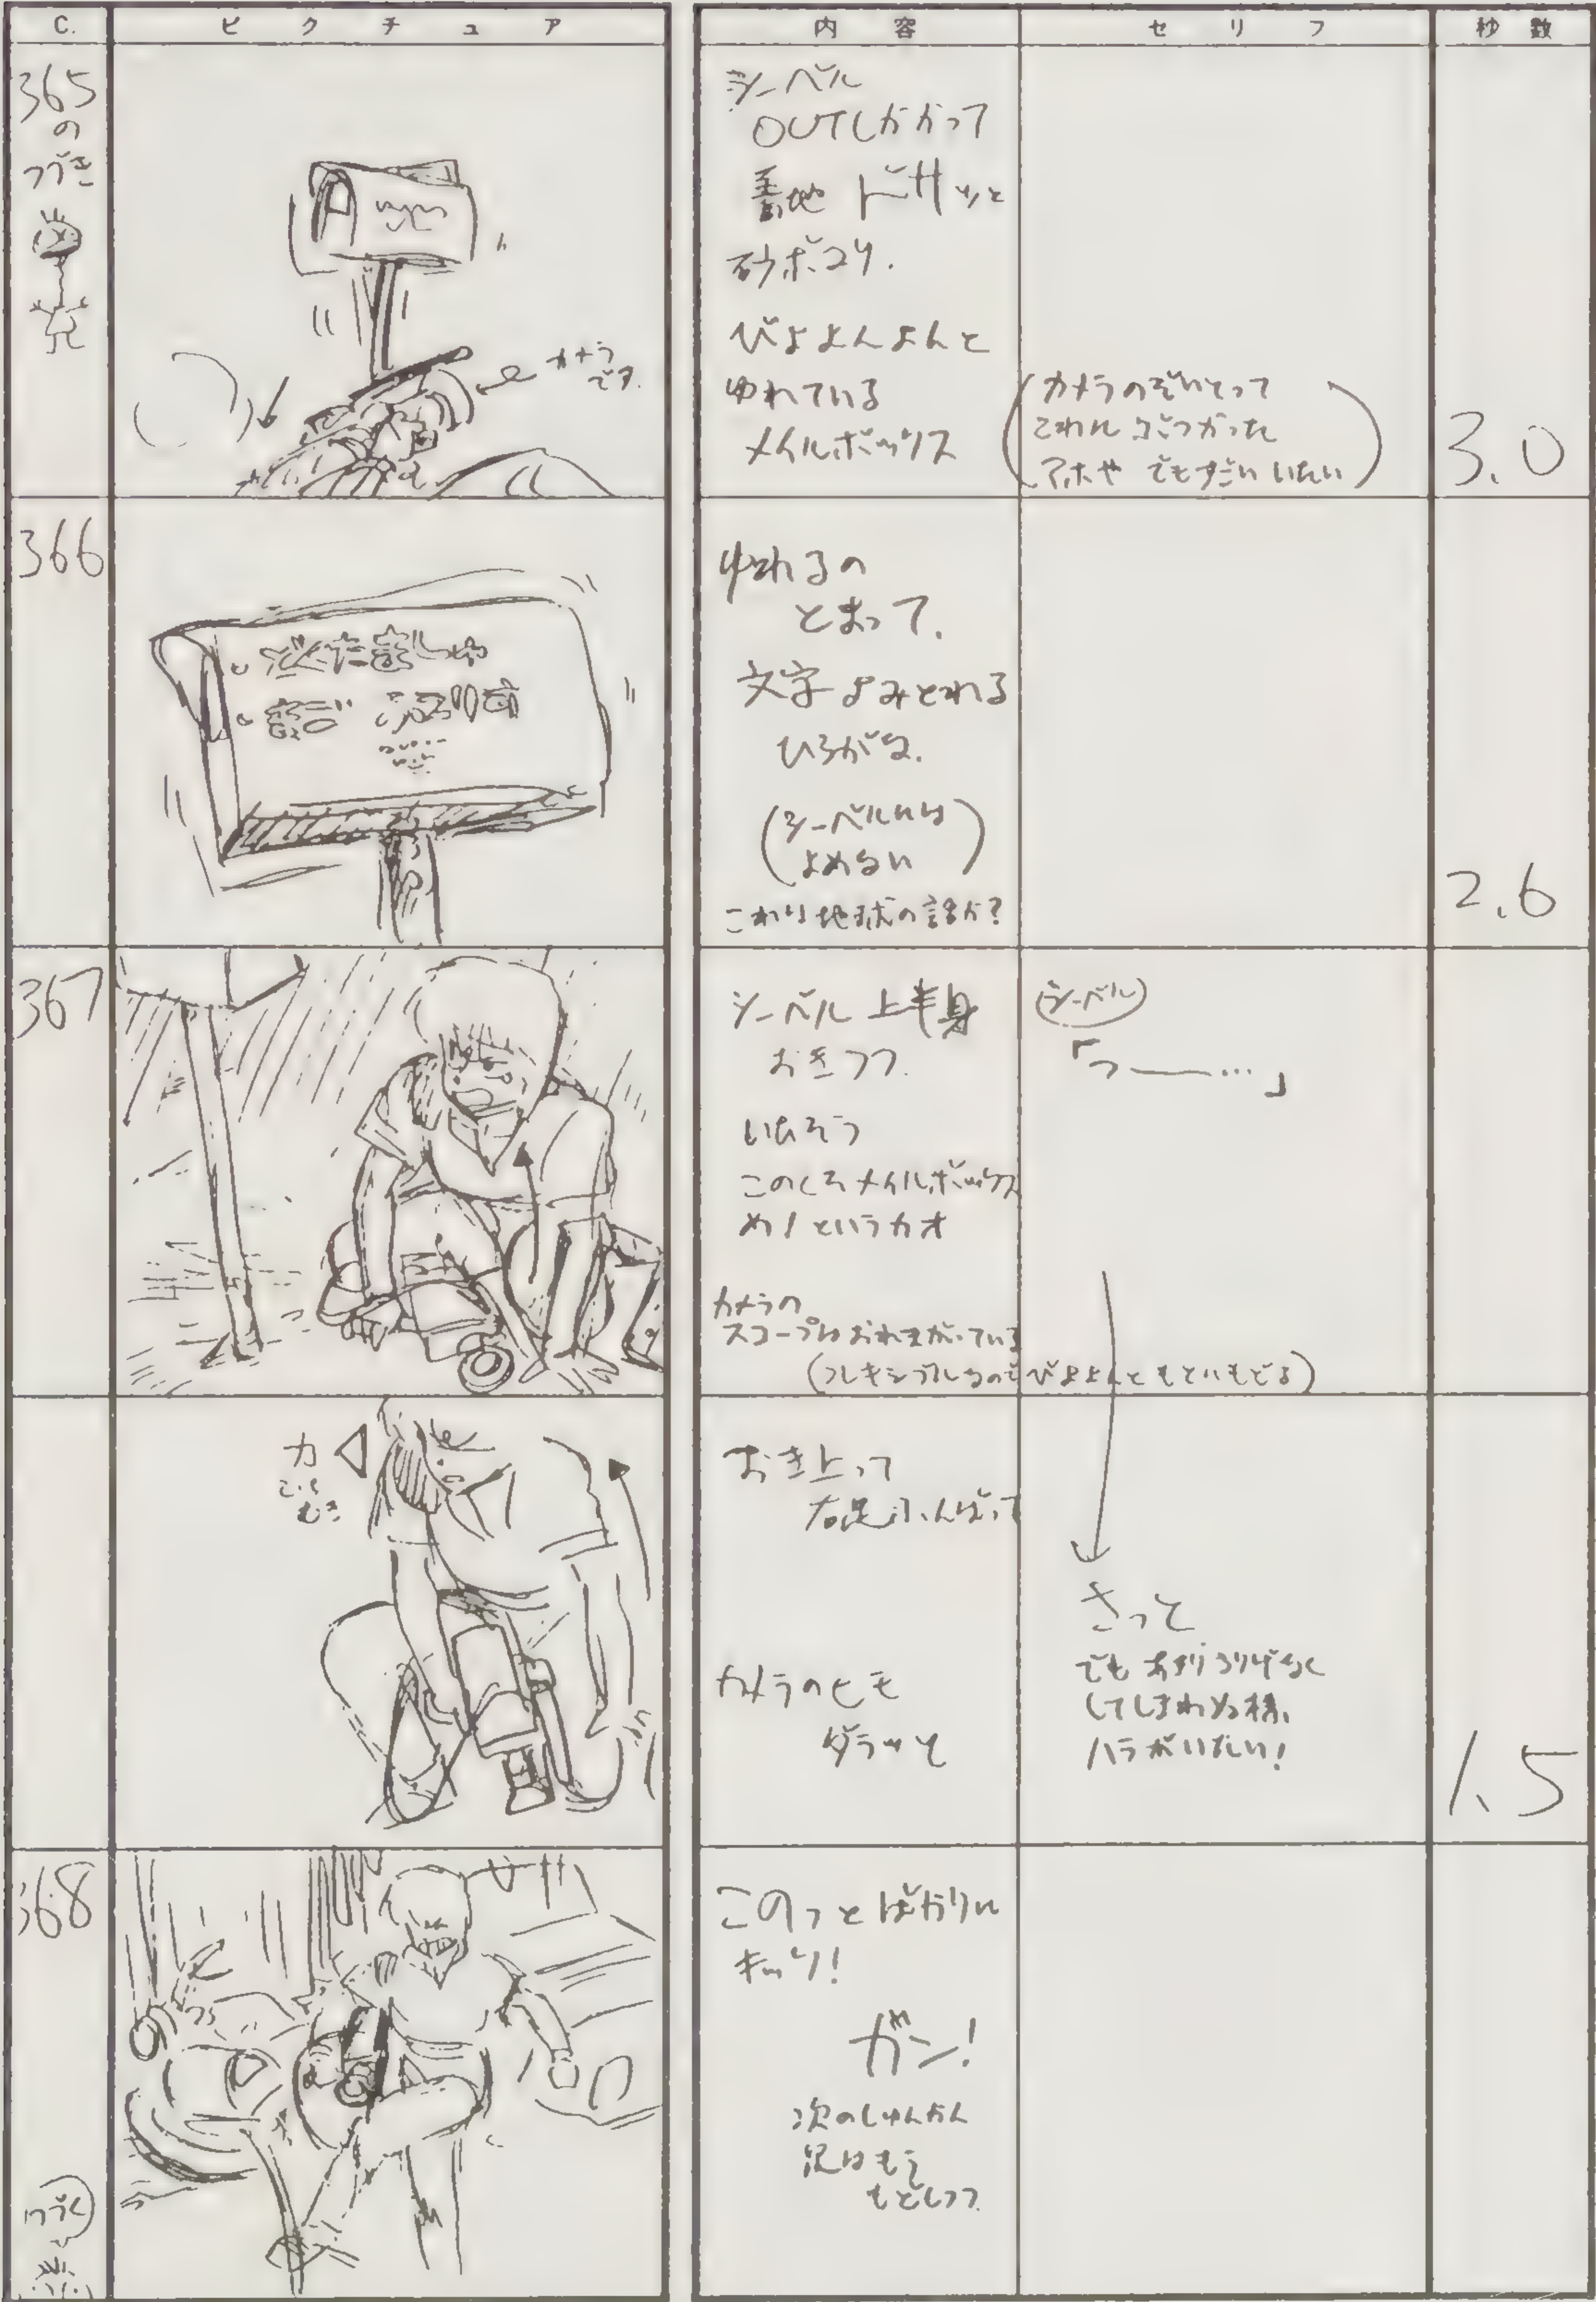 C.
ピクチュア
内容
セリフ
秒数
365
の
つづき
カメラ
です.
シーベル
OUTしかかって
着地 ドサッと
砂ボコリ.
びよよんよんと
ゆれている
メイルボックス
カメラのぞいとって
これにぶつかった
アホや でもすごい いたい
3.0
366
ゆれるの
とまって.
文字 よみとれる
ひらがな.
(シーベルには
よめない)
これは地球の話か?
2.6
367
シーベル 上半身
おきつつ.
いたそう
このくそメイルボックス
め!というカオ
カメラの
スコープはおれまがっている
(フレキシブルなのでびよよんと もとにもどる)
シーベル
「つ――…」
カ
こっち
むき
おき上って
右足ふんばって
カメラのヒモ
ダラッと
さっと
でも あまり
してしまわぬ様、
ハラがいたい!
1.5
368
このっとばかりに
キック!
ガーン!
次のしゅんかん
足はもう
もどしつつ
つづく